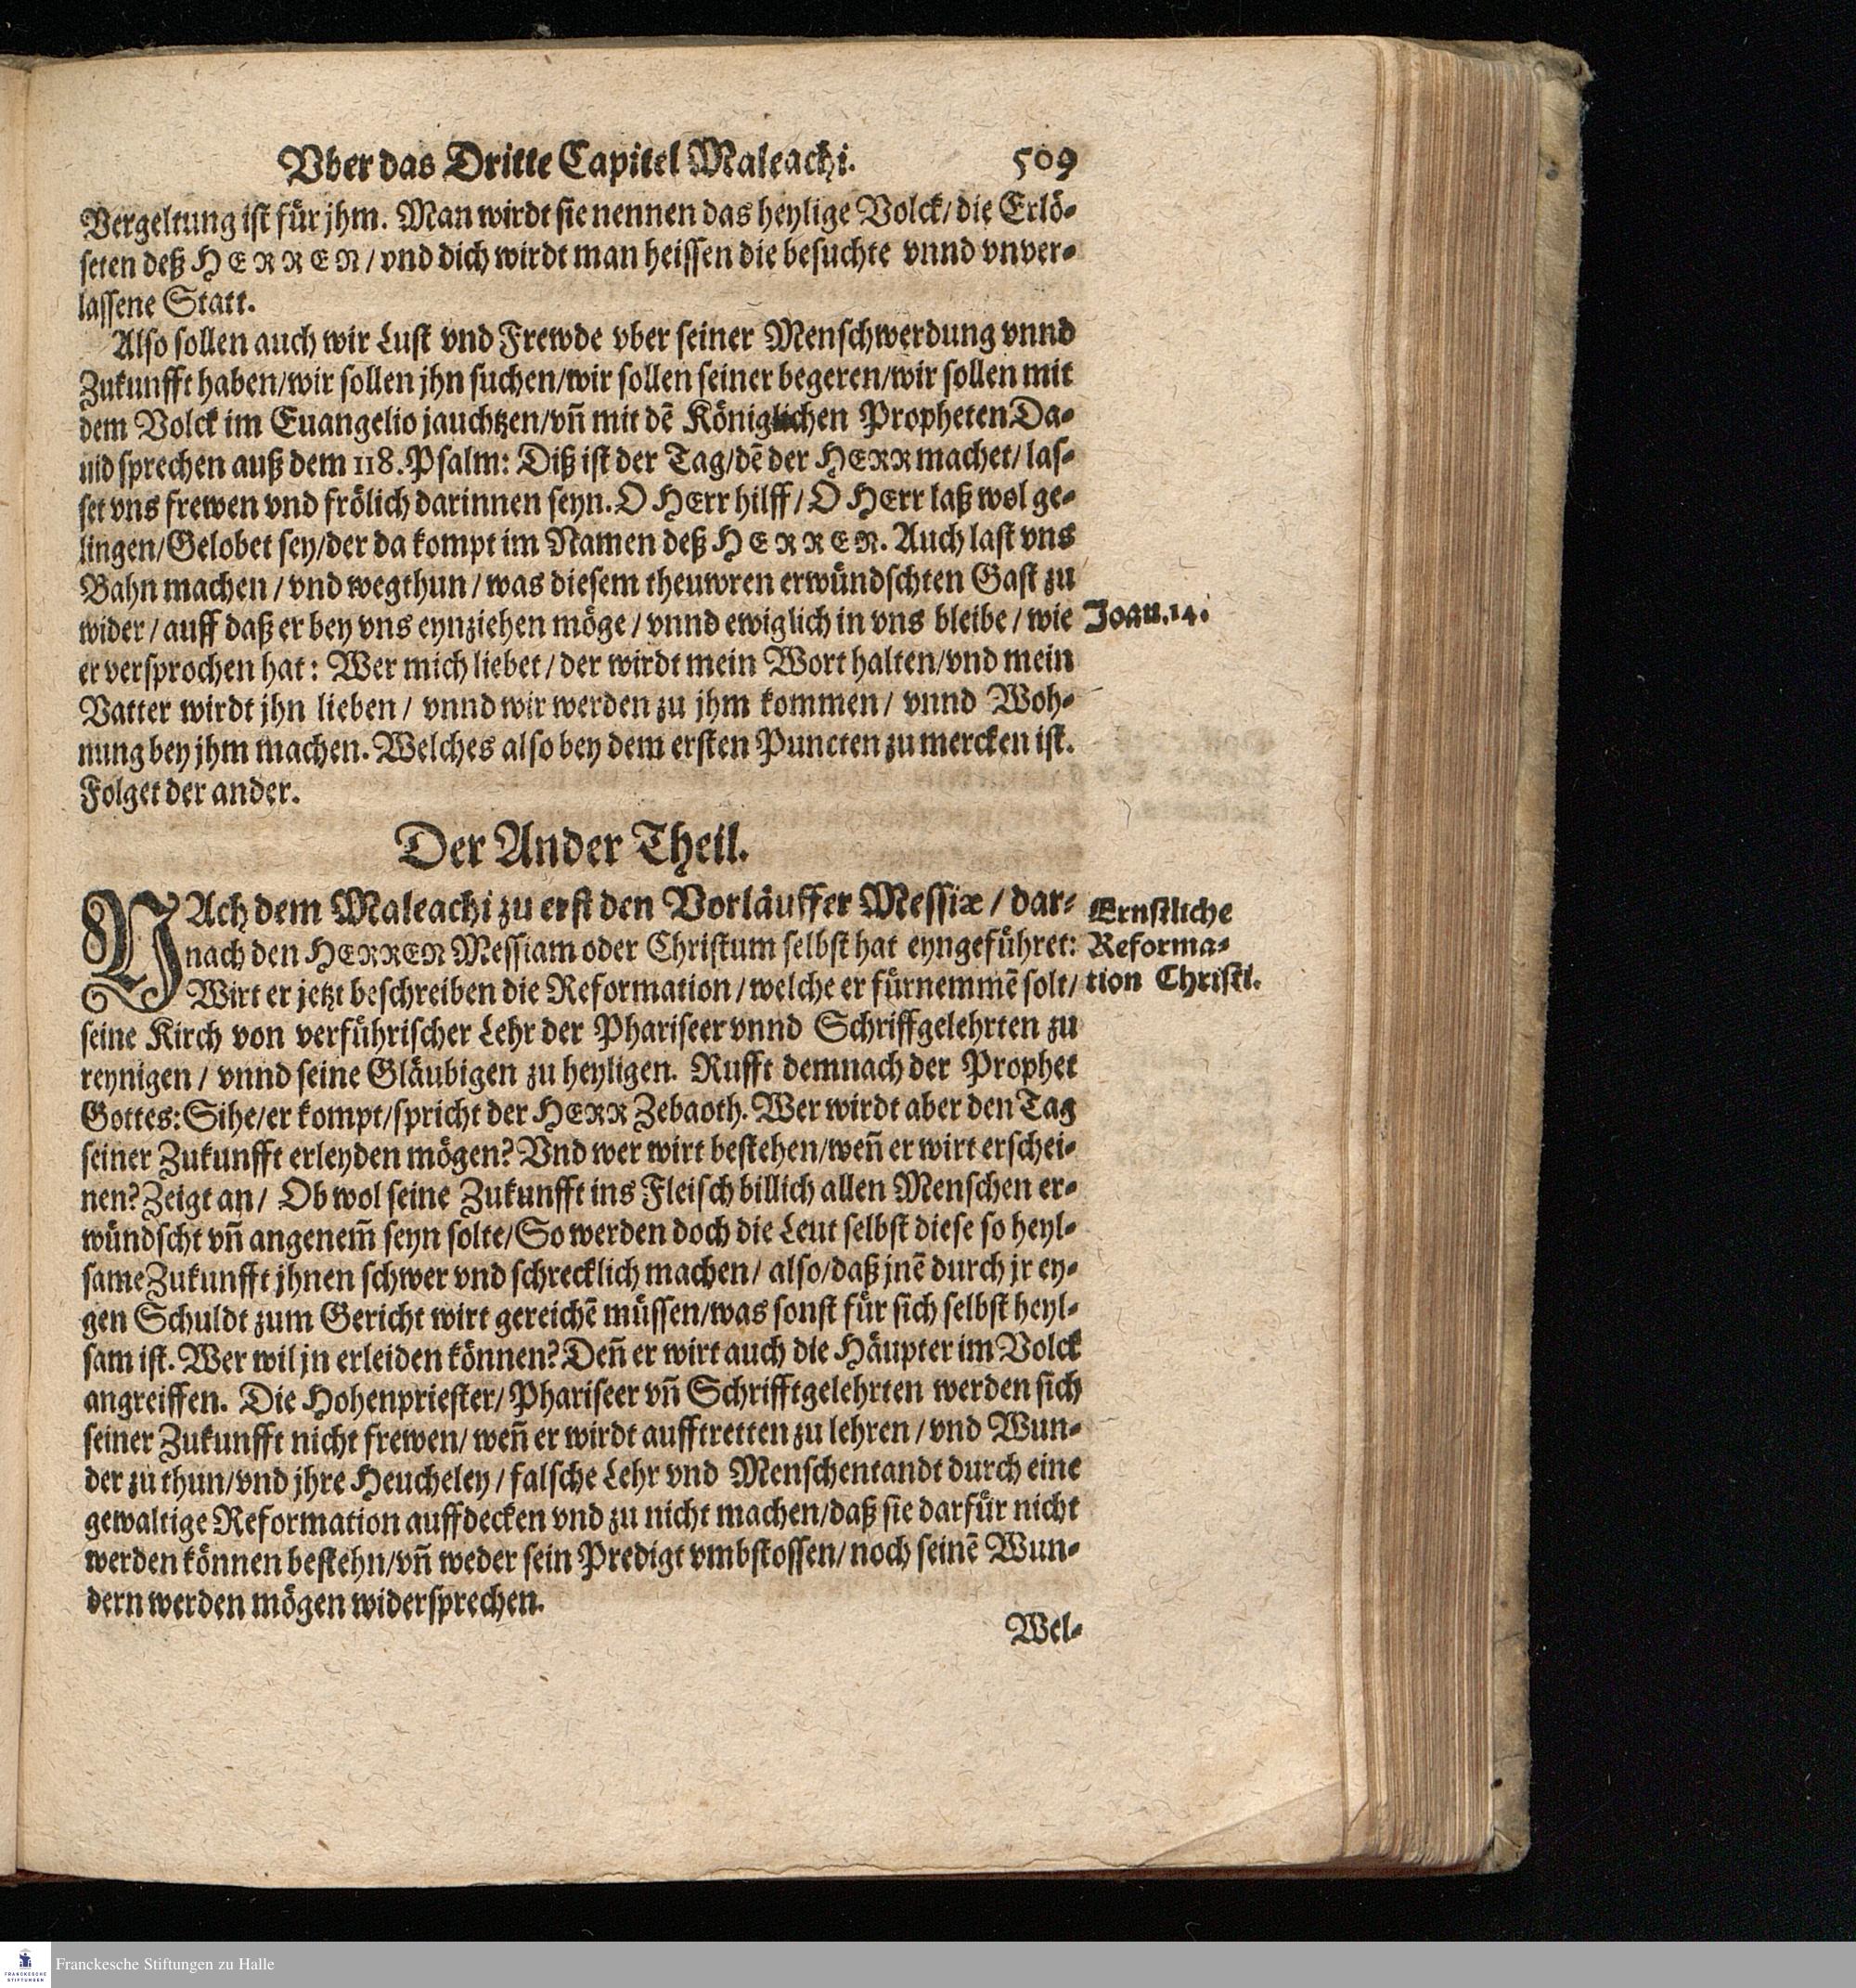 Vber das Dritte Capitel Maleachi. 509
Vergeltung ist für jhm. Man wirdt sie nennen das heylige Volck/ die Erlö-
seten deß HERREN/ vnd dich wirdt man heissen die besuchte vnnd vnver-
lassene Statt.
Also sollen auch wir Lust vnd Frewde vber seiner Menschwerdung vnnd
Zukunfft haben/wir sollen jhn suchen/wir sollen seiner begeren/wir sollen mit
dem Volck im Euangelio jauchtzen/vñ mit dẽ Königlichen Propheten Da-
uid sprechen auß dem 118. Psalm: Diß ist der Tag/dẽ der HERR machet/ las-
set vns frewen vnd frölich darinnen seyn. O HErr hilff/ O HErr laß wol ge-
lingen/Gelobet sey/der da kompt im Namen deß HERREN. Auch last vns
Bahn machen / vnd wegthun / was diesem theuwren erwündschten Gast zu
wider / auff daß er bey vns eynziehen möge / vnnd ewiglich in vns bleibe / wie
Joan.14.
er versprochen hat: Wer mich liebet / der wirdt mein Wort halten/vnd mein
Vatter wirdt jhn lieben / vnnd wir werden zu jhm kommen / vnnd Woh-
nung bey jhm machen. Welches also bey dem ersten Puncten zu mercken ist.
Folget der ander.
Der Ander Theil.
NAch dem Maleachi zu erst den Vorläuffer Messiæ / dar-
nach den HERREN Messiam oder Christum selbst hat eyngeführet:
Wirt er jetzt beschreiben die Reformation / welche er fürnemmẽ solt/
Ernstliche
Reforma-
tion Christi.
seine Kirch von verführischer Lehr der Phariseer vnnd Schriffgelehrten zu
reynigen / vnnd seine Gläubigen zu heyligen. Rufft demnach der Prophet
Gottes: Sihe/er kompt/spricht der HERR Zebaoth. Wer wirdt aber den Tag
seiner Zukunfft erleyden mögen? Vnd wer wirt bestehen/weñ er wirt erschei-
nen? Zeigt an/ Ob wol seine Zukunfft ins Fleisch billich allen Menschen er-
wündscht vñ angenem̃ seyn solte/So werden doch die Leut selbst diese so heyl-
same Zukunfft jhnen schwer vnd schrecklich machen/ also/daß jnẽ durch jr ey-
gen Schuldt zum Gericht wirt gereichẽ müssen/was sonst für sich selbst heyl-
sam ist. Wer wil jn erleiden können? Deñ er wirt auch die Häupter im Volck
angreiffen. Die Hohenpriester/ Phariseer vñ Schrifftgelehrten werden sich
seiner Zukunfft nicht frewen/ weñ er wirdt aufftretten zu lehren / vnd Wun-
der zu thun/vnd jhre Heucheley / falsche Lehr vnd Menschentandt durch eine
gewaltige Reformation auffdecken vnd zu nicht machen/daß sie darfür nicht
werden können bestehn/vñ weder sein Predigt vmbstossen/ noch seinẽ Wun-
dern werden mögen widersprechen.
Wel-
FRANCKESCHE
STIFTUNGEN
Franckesche Stiftungen zu Halle